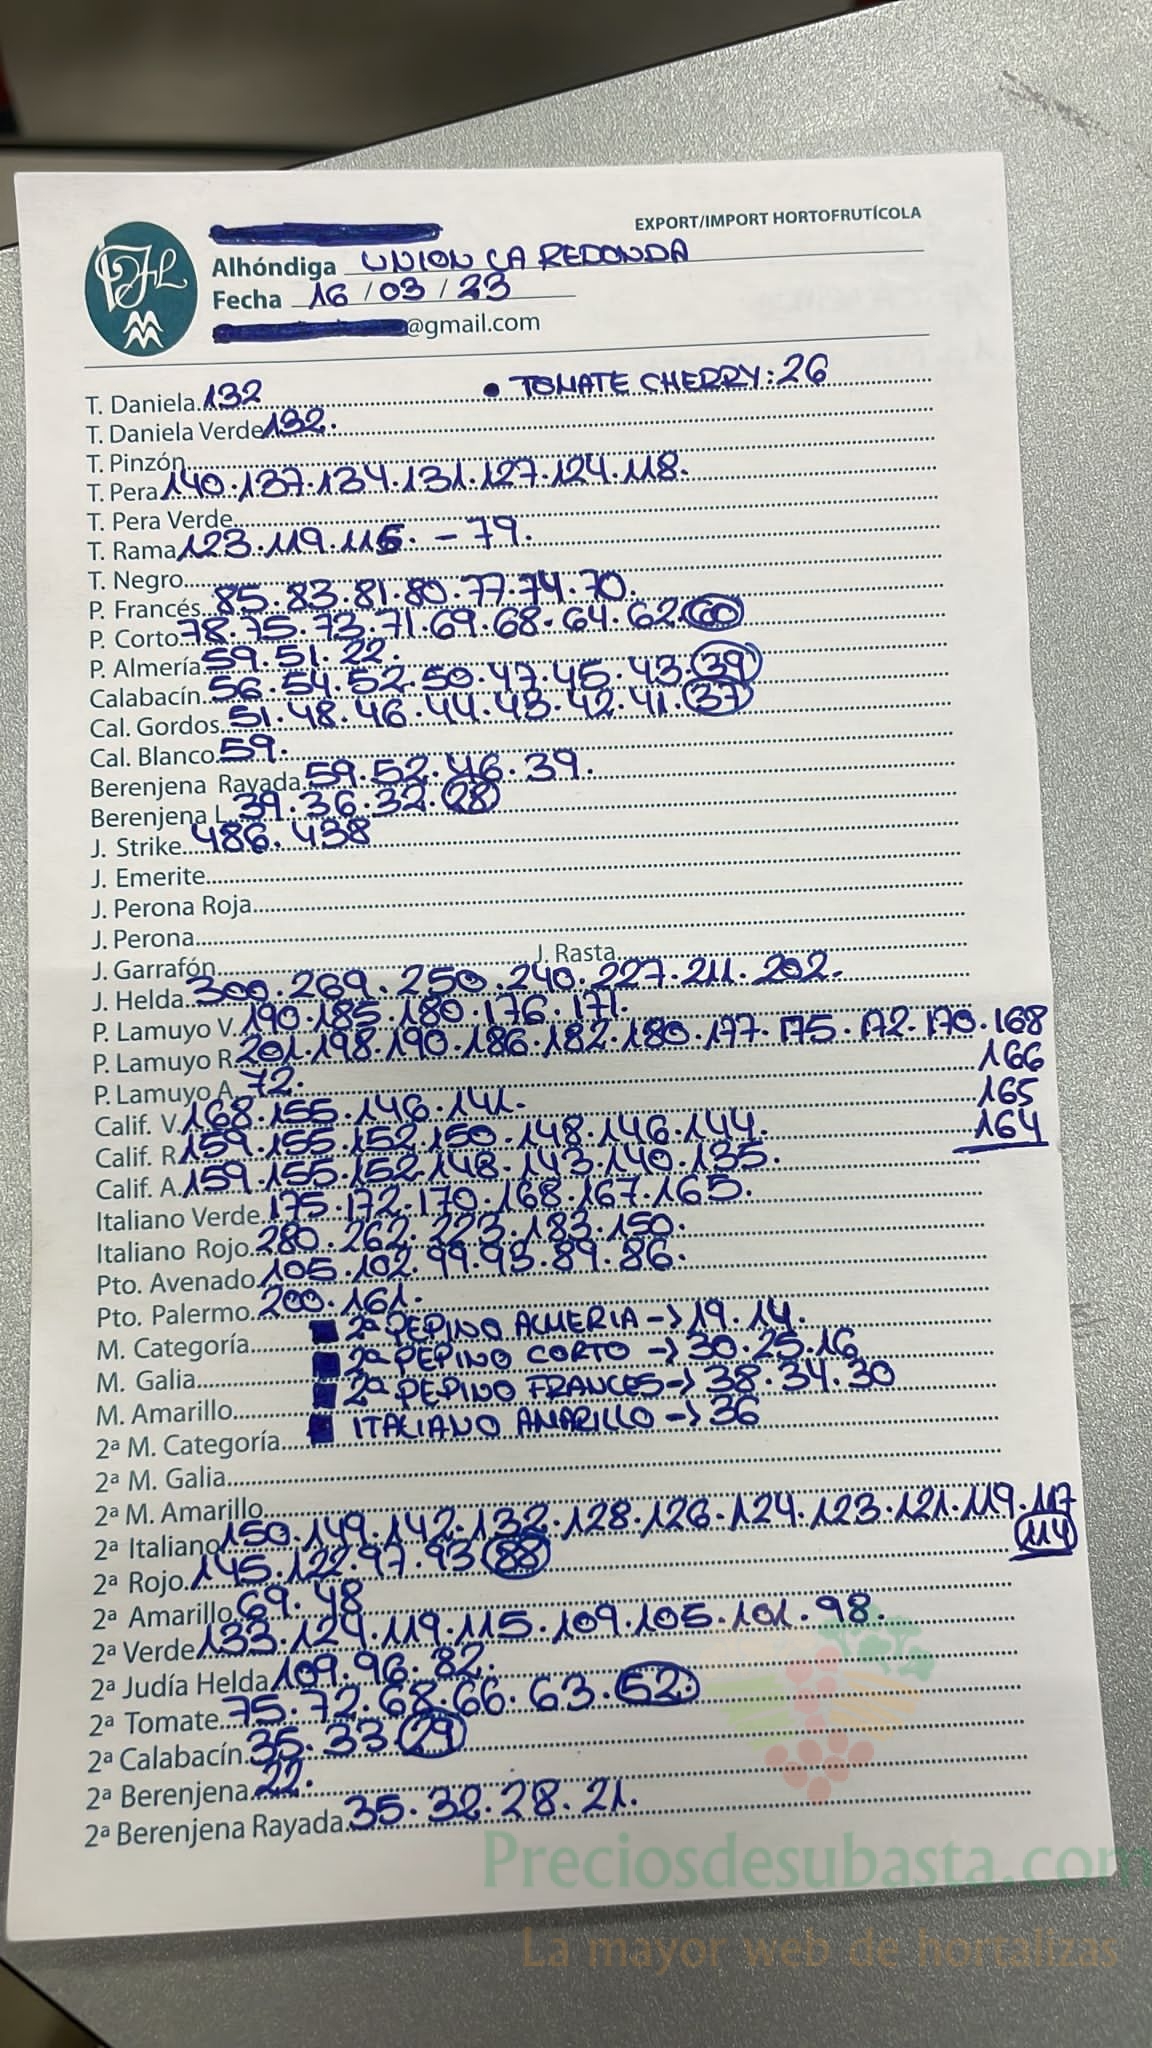 EXPORT/IMPORT HORTOFRUTÍCOLA
Alhóndiga UNION LA REDONDA
Fecha 16/03/23
@gmail.com
T. Daniela 132 • TOMATE CHERRY: 26
T. Daniela Verde 132.
T. Pinzón
T. Pera 140.137.134.131.127.124.118.
T. Pera Verde
T. Rama 123.119.115. - 79.
T. Negro
P. Francés 85.83.81.80.77.74.70.
P. Corto 78.75.73.71.69.68.64.62.60
P. Almería 59.51.22.
Calabacín 56.54.52.50.47.45.43.39
Cal. Gordos 51.48.46.44.43.42.41.37
Cal. Blanco 59.
Berenjena Rayada 59.52.46.39.
Berenjena L. 39.36.32.28
J. Strike 486.438
J. Emerite
J. Perona Roja
J. Perona
J. Garrafón J. Rasta
J. Helda 300.269.250.240.227.211.202.
P. Lamuyo V. 190.185.180.176.171.
P. Lamuyo R. 201.198.190.186.182.180.177.175.172.170.168
166
P. Lamuyo A. 72.
165
Calif. V. 168.155.146.141.
164
Calif. R. 159.155.152.150.148.146.144.
Calif. A. 159.155.152.148.143.140.135.
Italiano Verde 175.172.170.168.167.165.
Italiano Rojo 280.262.223.183.150.
Pto. Avenado 105.102.99.93.89.86.
Pto. Palermo 200.161.
M. Categoría 2ª PEPINO ALMERIA -> 19.14.
M. Galia 2ª PEPINO CORTO -> 30.25.16
M. Amarillo 2ª PEPINO FRANCES -> 38.34.30
2ª M. Categoría ITALIANO AMARILLO -> 36
2ª M. Galia
2ª M. Amarillo
2ª Italiano 150.149.142.132.128.126.124.123.121.119.117
114
2ª Rojo 145.122.97.93.88
2ª Amarillo 69.48
2ª Verde 133.124.119.115.109.105.101.98.
2ª Judía Helda 109.96.82.
2ª Tomate 75.72.68.66.63.52.
2ª Calabacín 35.33.29
2ª Berenjena 22.
2ª Berenjena Rayada 35.32.28.21.
Preciosdesubasta.com
La mayor web de hortalizas